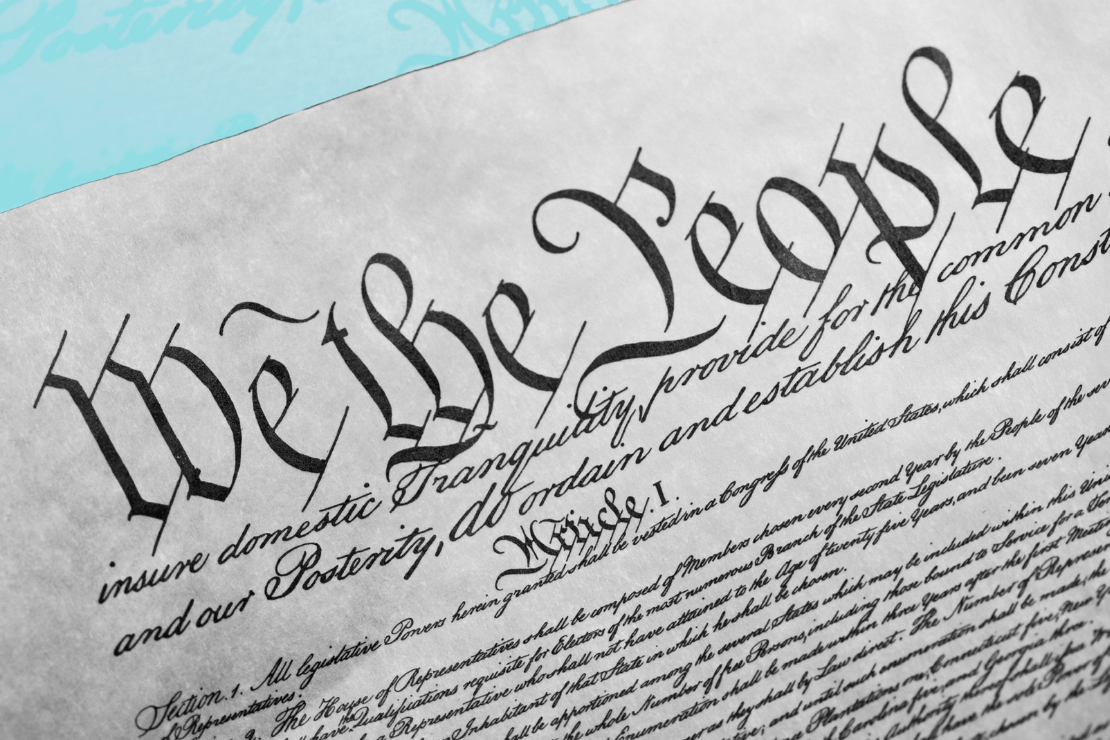 Posterity,
We the People
insure domestic Tranquility, provide for the common
and our Posterity, do ordain and establish this Const
Article. I.
Section. 1. All legislative Powers herein granted shall be vested in a Congress of the United States, which shall consist of
of Representatives.
The House of Representatives shall be composed of Members chosen every second Year by the People of the sev
have the Qualifications requisite for Electors of the most numerous Branch of the State Legislature.
a Representative who shall not have attained to the Age of twenty five Years, and been seven Year
Inhabitant of that State in which he shall be chosen.
shall be apportioned among the several States which may be included within this Uni
the whole Number of free Persons, including those bound to Service for a
Enumeration shall be made within three Years after the first
as they shall by Law direct. The Number of
and until such enumeration shall be made, the
Plantations one, Connecticut five, New
Georgia three.
Authority thereof shall